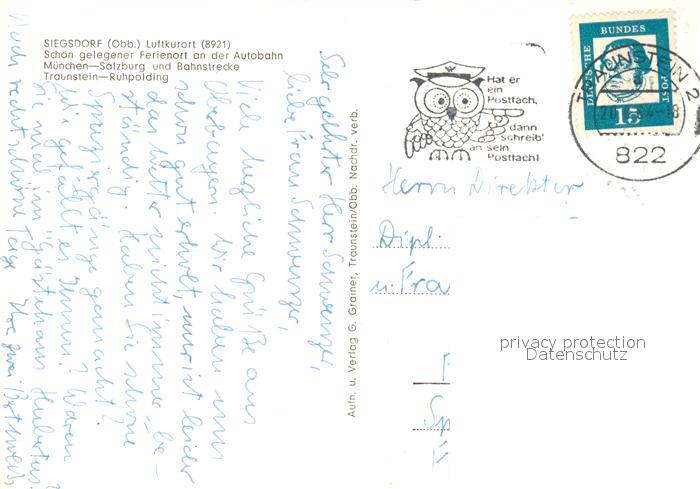 SIEGSDORF (Obb.) Luftkurort (8921)
Schön gelegener Ferienort an der Autobahn
München—Salzburg und Bahnstrecke
Traunstein—Ruhpolding
Sehr geehrter Herr Schwenzer,
liebe Frau Schwenzer,
Viele herzliche Grüße aus
Oberbayern. Wir haben uns
schon gut erholt, nur ist leider
das Wetter nicht immer be-
ständig. Haben Sie schöne
Spaziergänge gemacht?
Wie gefällt es Ihnen? Waren
Sie mal im Gästehaus Hubertus?
Noch recht schöne Tage
Aufn. u. Verlag G. Grainer, Traunstein/Obb. Nachdr. verb.
Hat er
ein
Postfach,
dann
schreib'
an sein
Postfach!
DEUTSCHE BUNDESPOST
15
TRAUNSTEIN 2
822
Herrn Direktor
Dipl.
u. Fra
privacy protection
Datenschutz